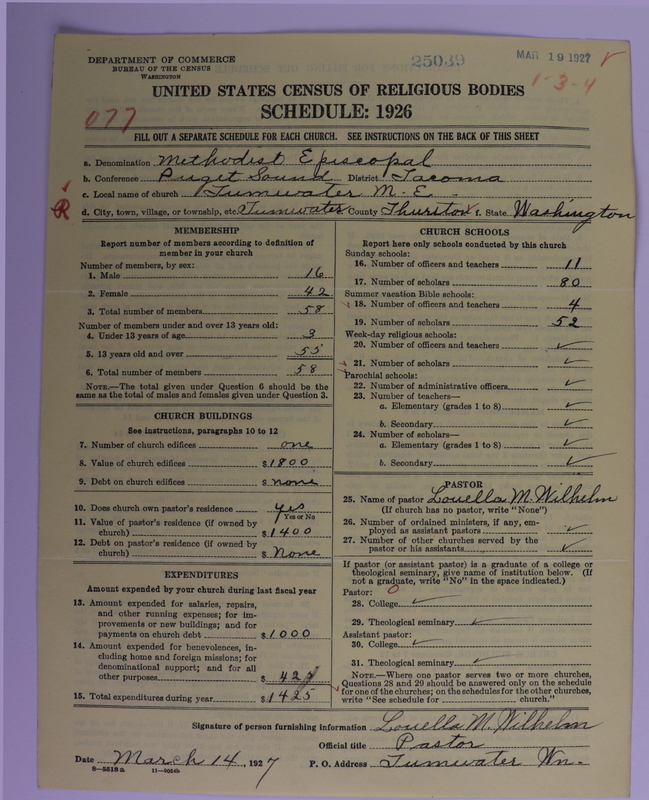 DEPARTMENT OF COMMERCE
BUREAU OF THE CENSUS
WASHINGTON
25039
MAR 19 1927
1-3-4
UNITED STATES CENSUS OF RELIGIOUS BODIES
SCHEDULE: 1926
077
FILL OUT A SEPARATE SCHEDULE FOR EACH CHURCH. SEE INSTRUCTIONS ON THE BACK OF THIS SHEET
a. Denomination Methodist Episcopal
b. Conference Puget Sound District Tacoma
c. Local name of church Tumwater M. E.
R
d. City, town, village, or township, etc. Tumwater County Thurston f. State Washington
MEMBERSHIP
Report number of members according to definition of
member in your church
Number of members, by sex:
1. Male 16
2. Female 42
3. Total number of members 58
Number of members under and over 13 years old:
4. Under 13 years of age 3
5. 13 years old and over 55
6. Total number of members 58
NOTE.—The total given under Question 6 should be
same as the total of males and females given under Question 3.
CHURCH BUILDINGS
See instructions, paragraphs 10 to 12
7. Number of church edifices one
8. Value of church edifices $1800
9. Debt on church edifices $none
10. Does church own pastor's residence yes
Yes or No
11. Value of pastor's residence (if owned by
church) $1400
12. Debt on pastor's residence (if owned by
church) $None
EXPENDITURES
Amount expended by your church during last fiscal year
13. Amount expended for salaries, repairs,
and other running expenses; for im-
provements or new buildings; and for
payments on church debt $1000
14. Amount expended for benevolences, in-
cluding home and foreign missions; for
denominational support; and for all
other purposes $
15. Total expenditures during year $1425
CHURCH SCHOOLS
Report here only schools conducted by this church
Sunday schools:
16. Number of officers and teachers 11
17. Number of scholars 80
Summer vacation Bible schools:
18. Number of officers and teachers 4
19. Number of scholars 52
Week-day religious schools:
20. Number of officers and teachers ✓
21. Number of scholars ✓
Parochial schools:
22. Number of administrative officers ✓
23. Number of teachers—
a. Elementary (grades 1 to 8) ✓
b. Secondary ✓
24. Number of scholars—
a. Elementary (grades 1 to 8) ✓
b. Secondary ✓
PASTOR
25. Name of pastor Louella M. Wilhelm
(If church has no pastor, write "None")
26. Number of ordained ministers, if any, em-
ployed as assistant pastors ✓
27. Number of other churches served by the
pastor or his assistants ✓
If pastor (or assistant pastor) is a graduate of a college or
theological seminary, give name of institution below. (If
not a graduate, write "No" in the space indicated.)
Pastor: 0
28. College ✓
29. Theological seminary ✓
Assistant pastor:
30. College ✓
31. Theological seminary ✓
NOTE.—Where one pastor serves two or more churches,
Questions 28 and 29 should be answered only on the schedule
for one of the churches; on the schedules for the other churches,
write "See schedule for church."
Signature of person furnishing information Louella M. Wilhelm
Official title Pastor
Date March 14, 1927 P. O. Address Tumwater Wn.
8—5518a 11—9054b